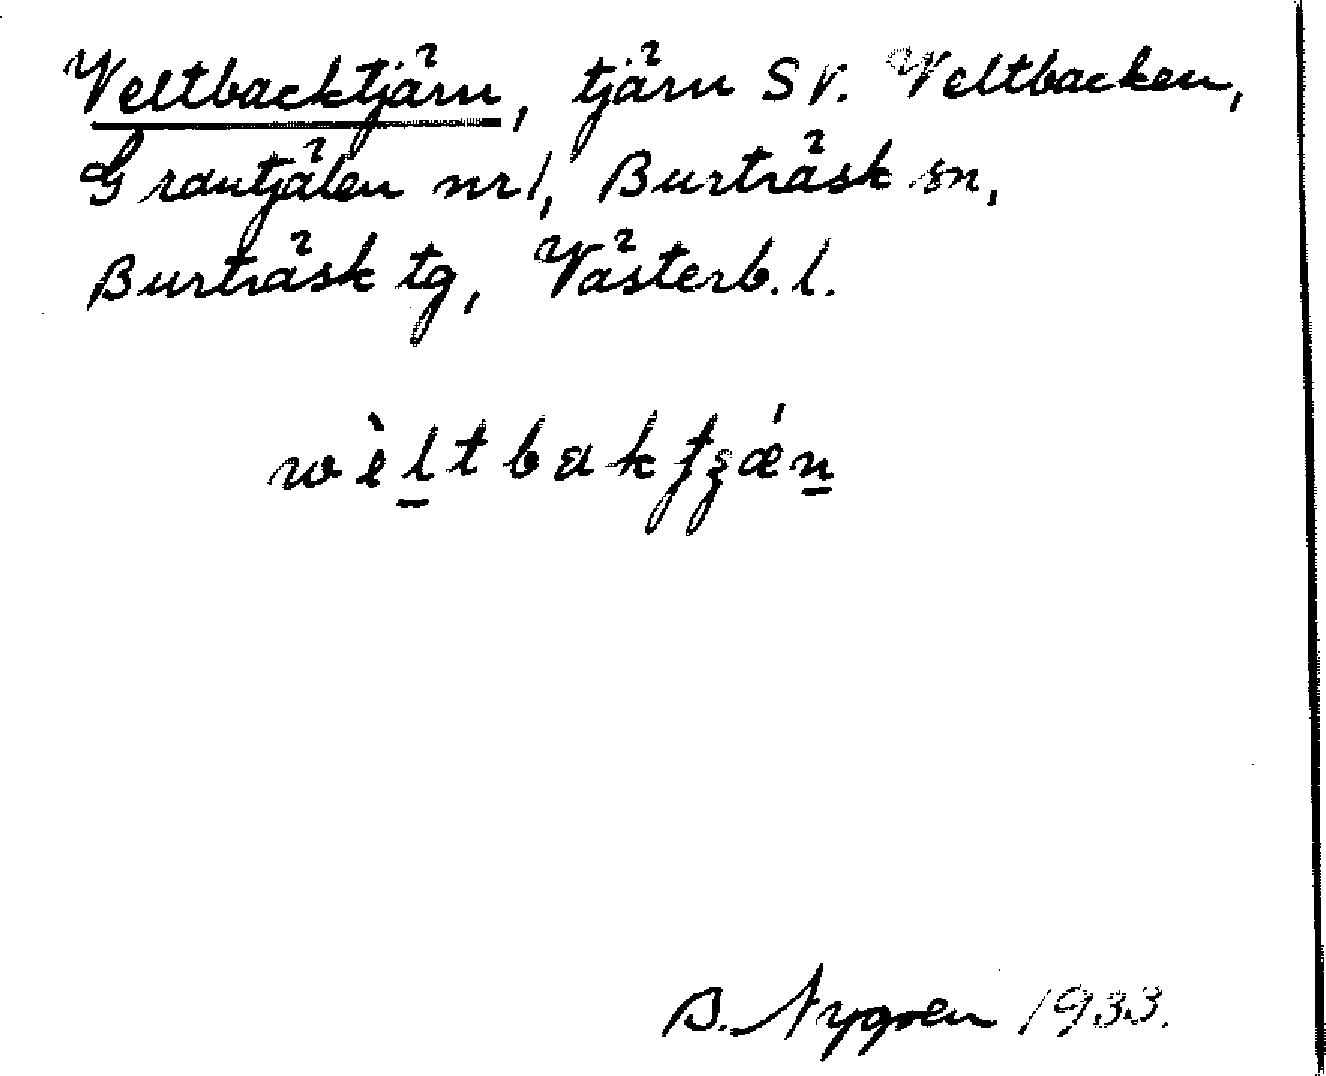 Veltbacktjärn, tjärn SV. Veltbacken,
Grantjälen nr 1, Burträsk sn,
Burträsk tg, Västerb. l.
B. Nygren 1933.